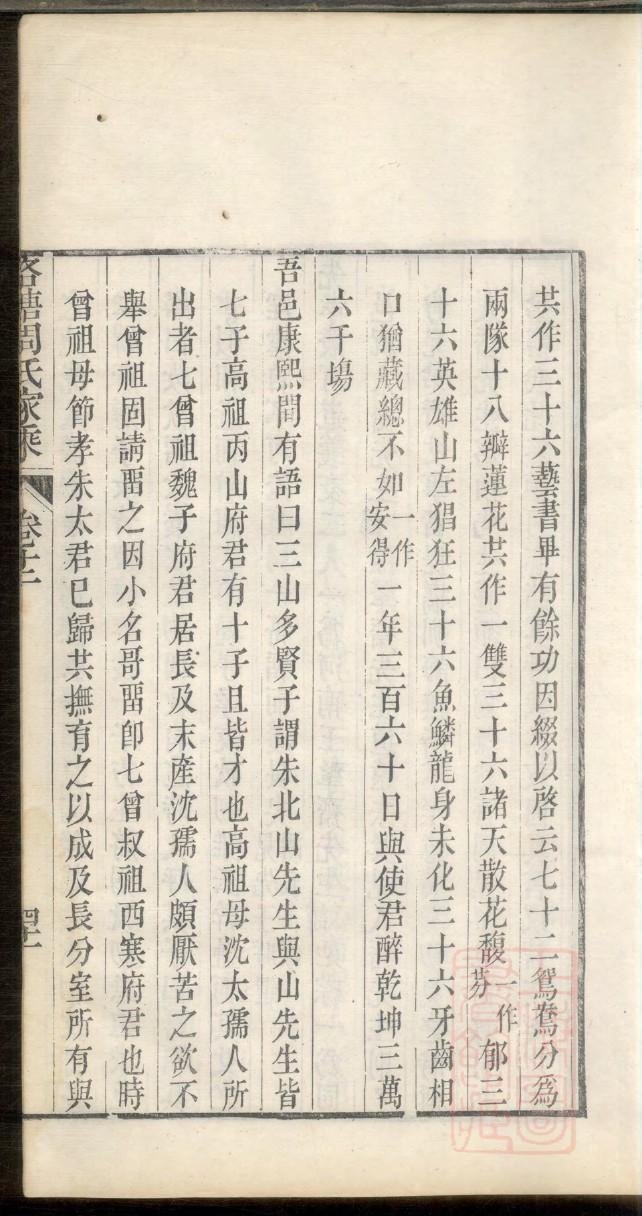 共作三十六藝書畢有餘功因綴以啓云七十二鴛鴦分爲
兩隊十八瓣蓮花共作一雙三十六諸天散花馥一作芬郁三
十六英雄山左猖狂三十六魚鱗龍身未化三十六牙齒相
口猶藏總不如一作安得一年三百六十日與使君醉乾坤三萬
六千塲
吾邑康熙間有語曰三山多賢子謂朱北山先生與山先生皆
七子高祖丙山府君有十子且皆才也高祖母沈太孺人所
出者七曾祖魏子府君居長及末産沈孺人頗厭苦之欲不
舉曾祖固請畱之因小名哥畱卽七曾叔祖西寒府君也時
曾祖母節孝朱太君已歸共撫有之以成及長分室所有與
周氏家乘